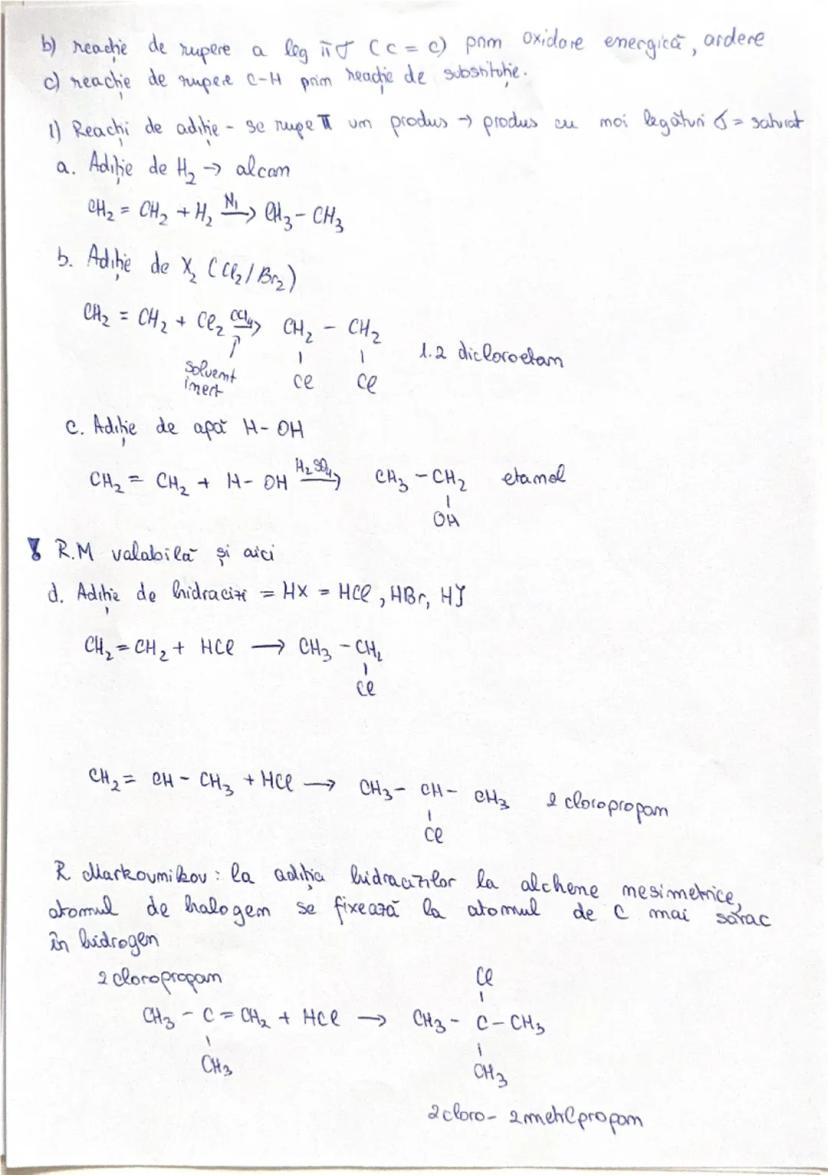 b) reacție de rupere a leg πσ (C=C) prin oxidare energică, ardere
c) reacție de rupere C-H prin reacție de substituție.
1) Reacții de adiție - se rupe π un produs → produs cu mai legături σ = saturat
a. Adiție de H₂ → alcan
CH₂ = CH₂ + H₂ —Ni→ CH₃ – CH₃
b. Adiție de X₂ (Cl₂/Br₂)
CH₂ = CH₂ + Cl₂ —CCl₄→ CH₂ – CH₂
solvent inert
Cl Cl
1.2 dicloroetan
c. Adiție de apă H-OH
CH₂ = CH₂ + H-OH —H₂SO₄→ CH₃ – CH₂ etanol
OH
! R.M valabilă și aici
d. Adiție de hidracizi = HX = HCl, HBr, HI
CH₂ = CH₂ + HCl → CH₃ – CH₂
Cl
CH₂ = CH – CH₃ + HCl → CH₃ – CH – CH₃ 2 cloropropan
Cl
R Markovnikov: la adiția hidracizilor la alchene nesimetrice,
atomul de halogen se fixează la atomul de C mai sărac
în hidrogen
2 cloropropan
Cl
CH₃ – C = CH₂ + HCl → CH₃ – C – CH₃
CH₃ CH₃
2 cloro – 2 metilpropan